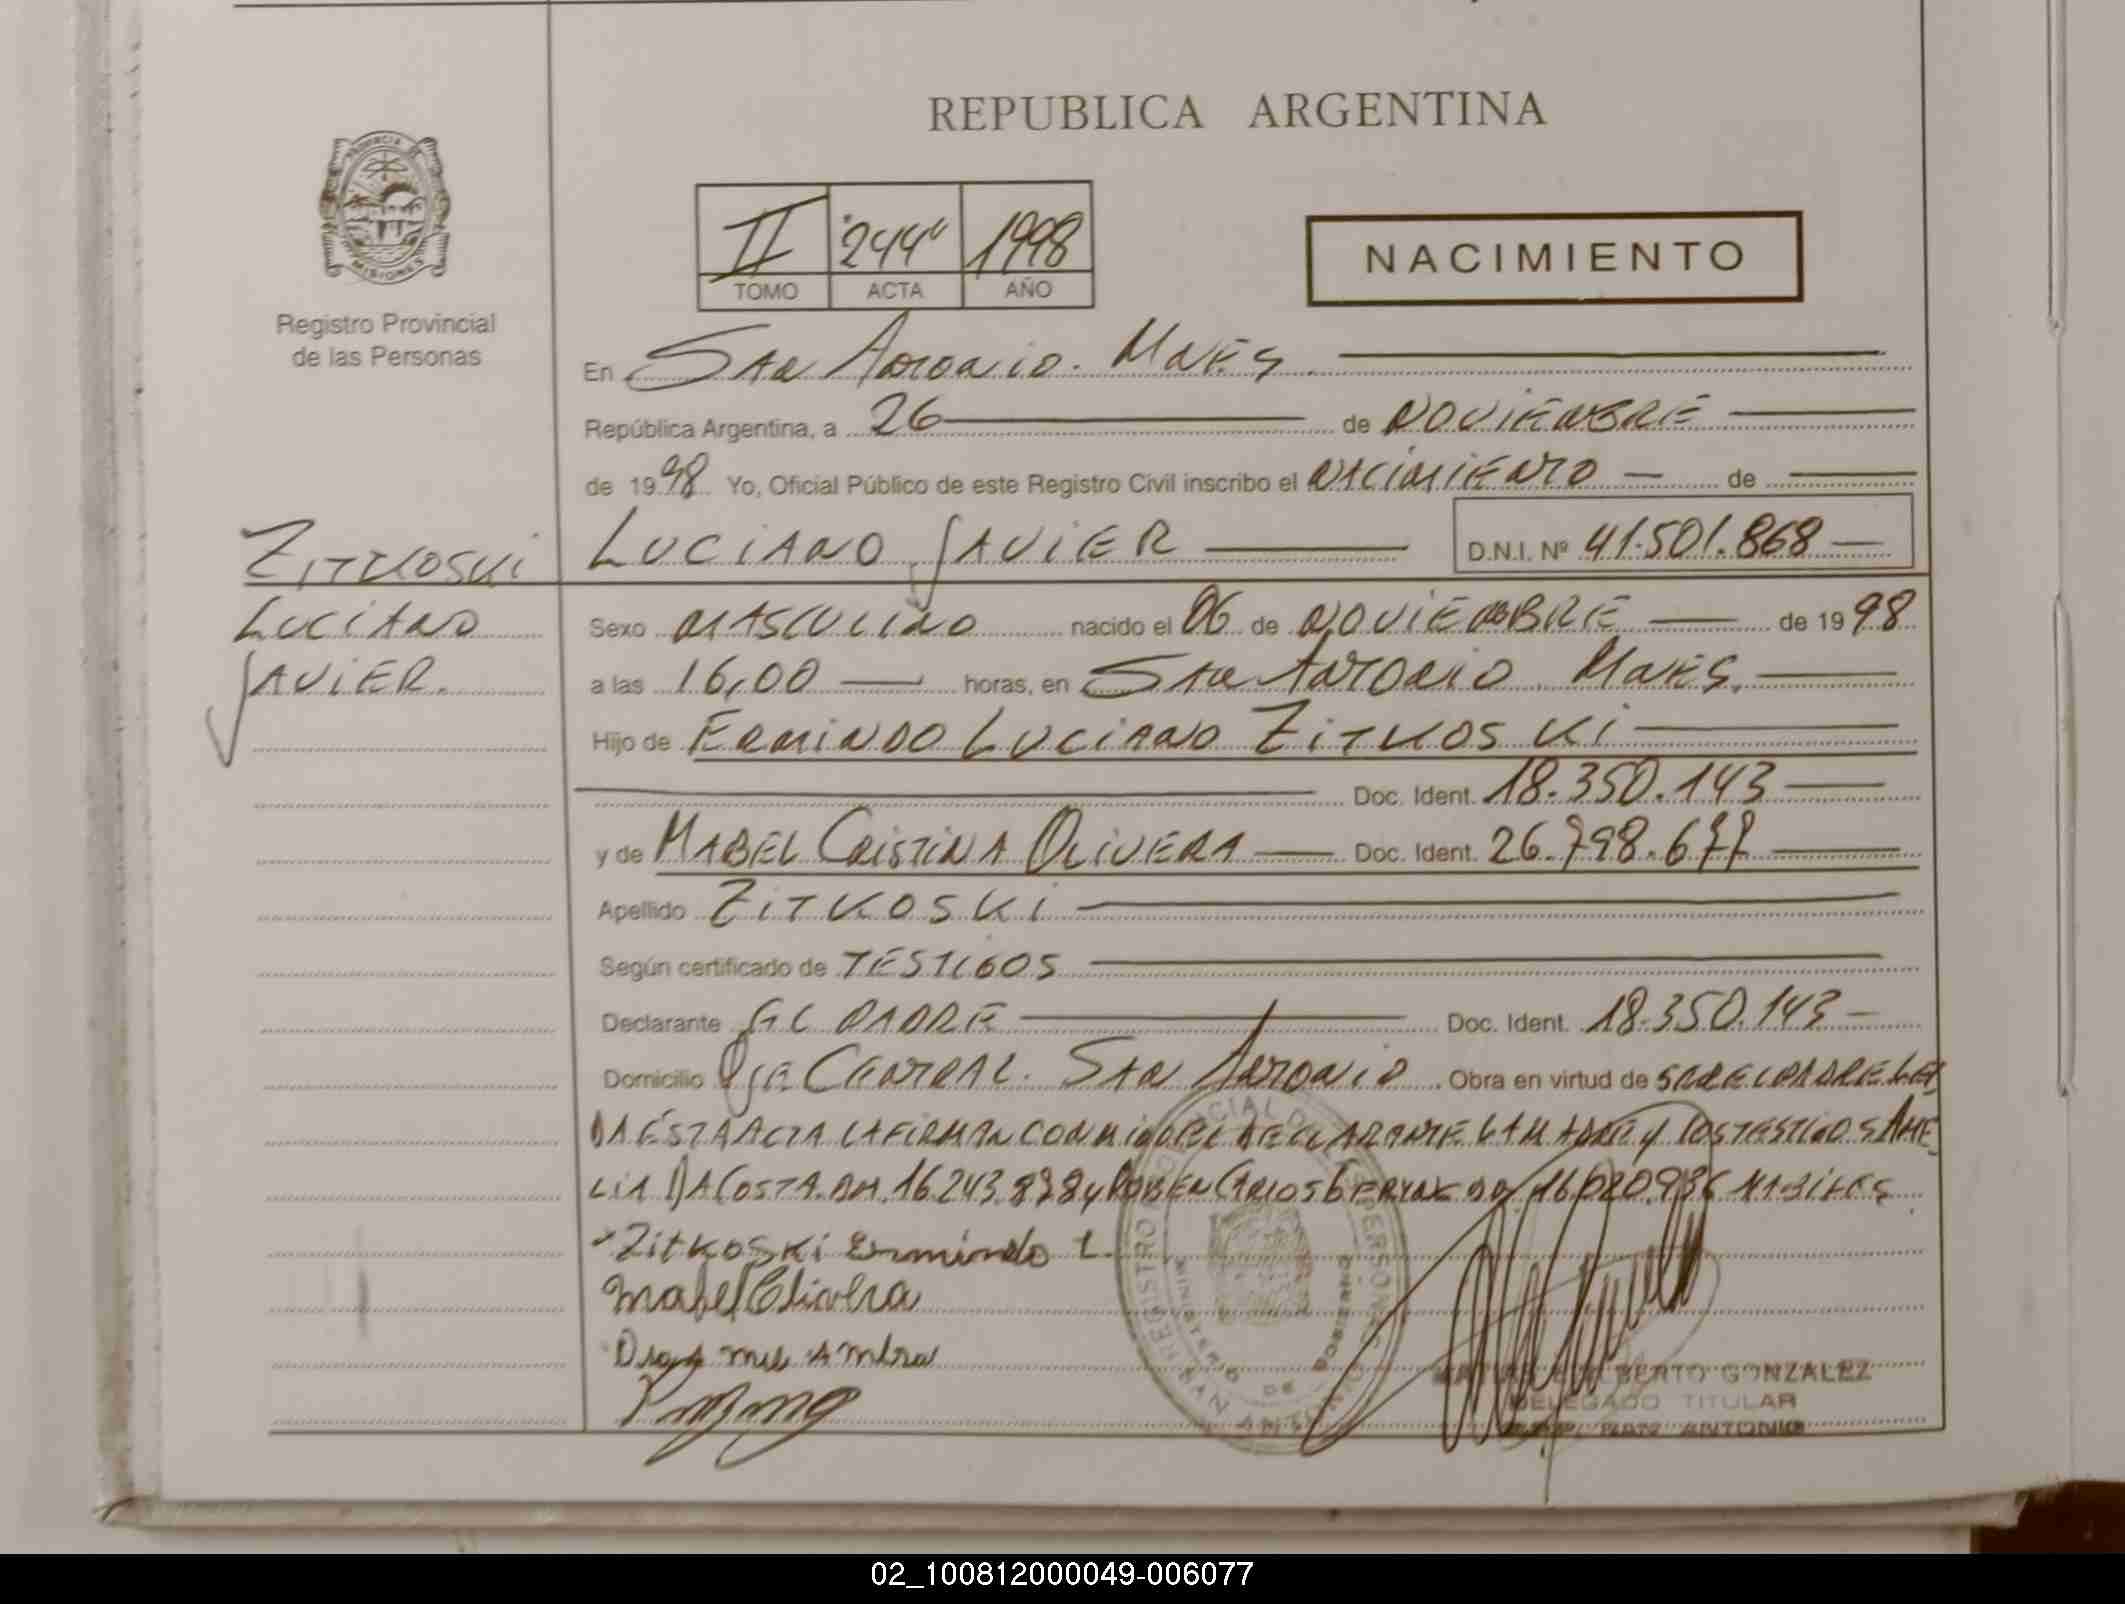 REPUBLICA ARGENTINA
PROVINCIA DE
MISIONES
Registro Provincial
de las Personas
II "244" 1998
TOMO ACTA AÑO
NACIMIENTO
En San Antonio. Mnes.
República Argentina, a 26 de NOVIEMBRE
de 1998 Yo, Oficial Público de este Registro Civil inscribo el NACIMIENTO de
LUCIANO JAVIER D.N.I. Nº 41.501.868
ZITKOSKI
LUCIANO
JAVIER.
Sexo MASCULINO nacido el 06 de NOVIEMBRE de 1998
a las 16,00 horas, en SAN ANTONIO Mnes.
Hijo de ERMINDO LUCIANO ZITKOSKI
Doc. Ident. 18.350.143
y de MABEL CRISTINA OLIVERA Doc. Ident. 26.798.677
Apellido ZITKOSKI
Según certificado de TESTIGOS
Declarante EL PADRE Doc. Ident. 18.350.143
Domicilio Pje CENTRAL. SAN ANTONIO. Obra en virtud de SER EL PADRE LEI
DA ESTA ACTA LA FIRMAN CONMIGO EL DECLARANTE LA MADRE Y LOS TESTIGOS AME
LIA DA COSTA 16.243.878 y RUBEN CARLOS 16.020.936 HABILES
Zitkoski Ermindo L.
Mabel Olivera
REGISTRO PROVINCIAL DE LAS PERSONAS
MINISTERIO DE GOBIERNO
SAN ANTONIO
ALBERTO GONZALEZ
DELEGADO TITULAR
SAN ANTONIO
02_100812000049-006077